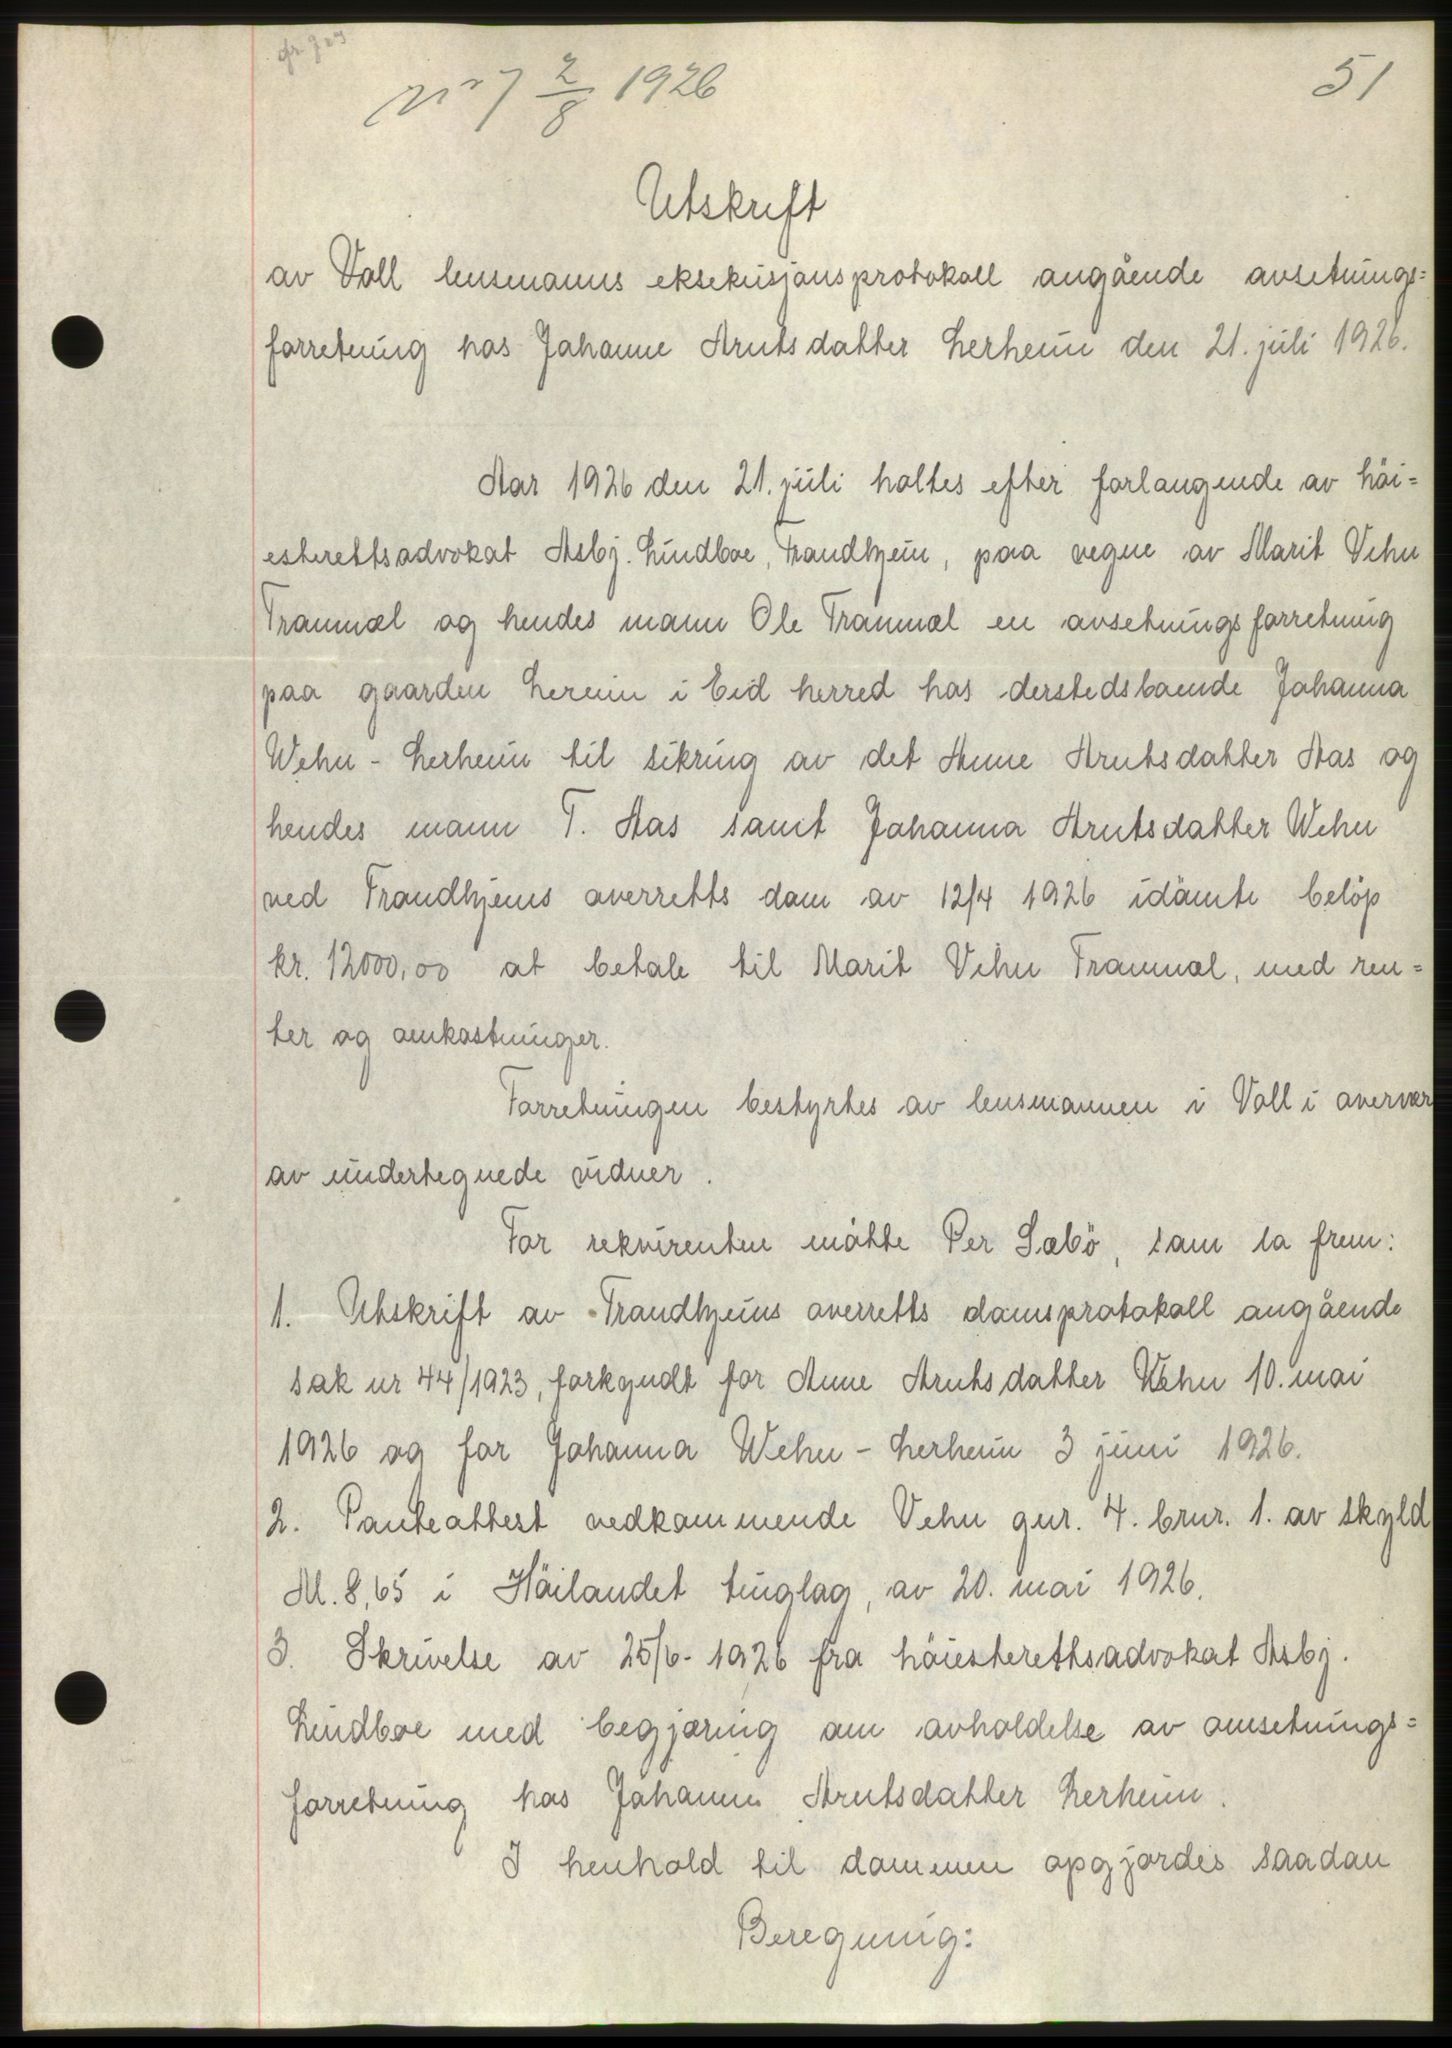 nr 7 2/8 1926
51
Utskrift
av Voll lensmanns eksekusjonsprotokoll angående avsetnings=
forretning hos Johanne Arntsdatter Lerheim den 21. juli 1926.
Aar 1926 den 21. juli holtes efter forlangende av höi=
esterettsadvokat Asbj. Lindboe, Trondhjem, paa vegne av Marit Vehn
Tranmæl og hendes mann Ole Tranmæl en avsetningsforretning
paa gaarden Lereim i Eid herred hos derstedsboende Johanna
Wehn - Lerheim til sikring av det Anne Arntsdatter Aas og
hendes mann T. Aas samt Johanna Arntsdatter Wehn
ved Trondhjems overretts dom av 12/4 1926 idömte belöp
kr. 12000,00 at betale til Marit Vehn Tranmæl, med ren=
ter og omkostninger.
Forretningen bestyrtes av lensmannen i Voll i overvær
av undertegnede vidner.
For rekvirenten måtte Per Sæbö, som la frem:
1. Utskrift av Trondhjems overretts domsprotokoll angående
sak nr 44/1923, forkyndt for Anne Arntsdatter Wehn 10. mai
1926 og for Johanna Wehn - Lerheim 3 juni 1926.
2. Panteattest vedkommende Vehn gnr. 4. brnr. 1. av skyld
M. 8,65 i Höilandet tinglag, av 20. mai 1926.
3. Skrivelse av 25/6 - 1926 fra höiesterettsadvokat Asbj.
Lindboe med begjæring om avholdelse av omsetnings=
forretning hos Johanne Arntsdatter Lerheim.
I henhold til dommen opgjordes saadan
Beregning: